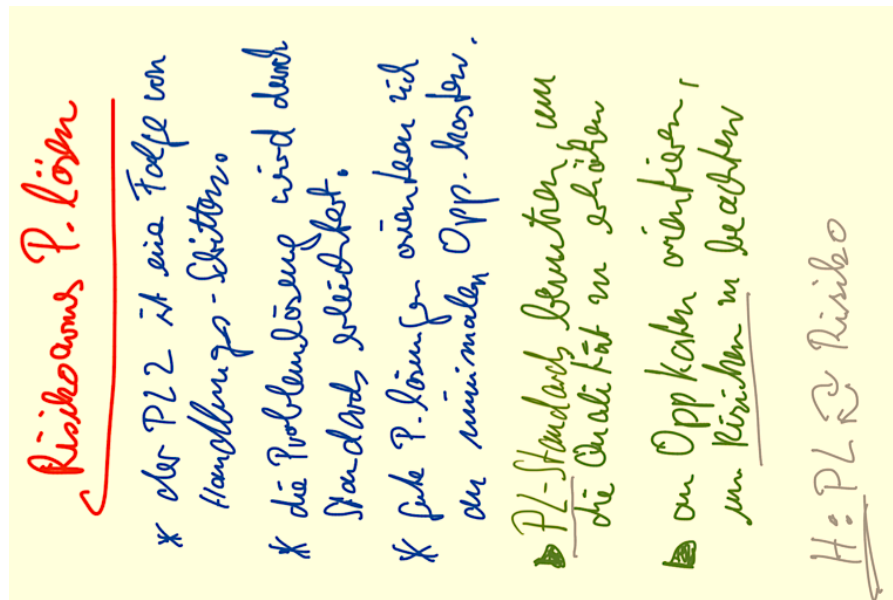 Risikoarms P. lösen
* der PLZ ist eine Folge von
Handlungs-Schritten.
* die Problemlösung wird durch
Standards erleichtert.
* gute P. lösungen orientieren sich
an minimalen Opp-kosten.
PL-Standards benutzen um
die Qualität zu erhöhen
an Oppkosten orientieren,
um Risiken zu beachten
H: PL Risiko